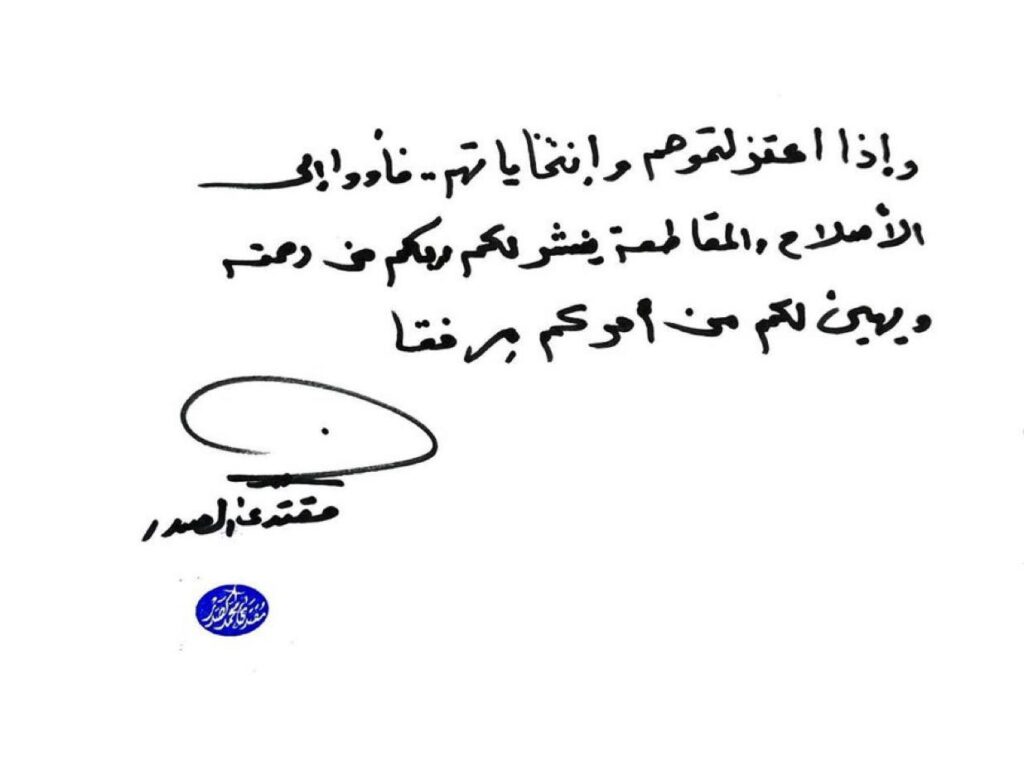 وإذا اعتزلتموهم وإنتخاباتهم.. فأووا إلى
الأصلاح والمقاطعة ينشر لكم ربكم من رحمته
ويهيئ لكم من أمركم مرفقا
مقتدى الصدر
مقتدى محمد الصدر